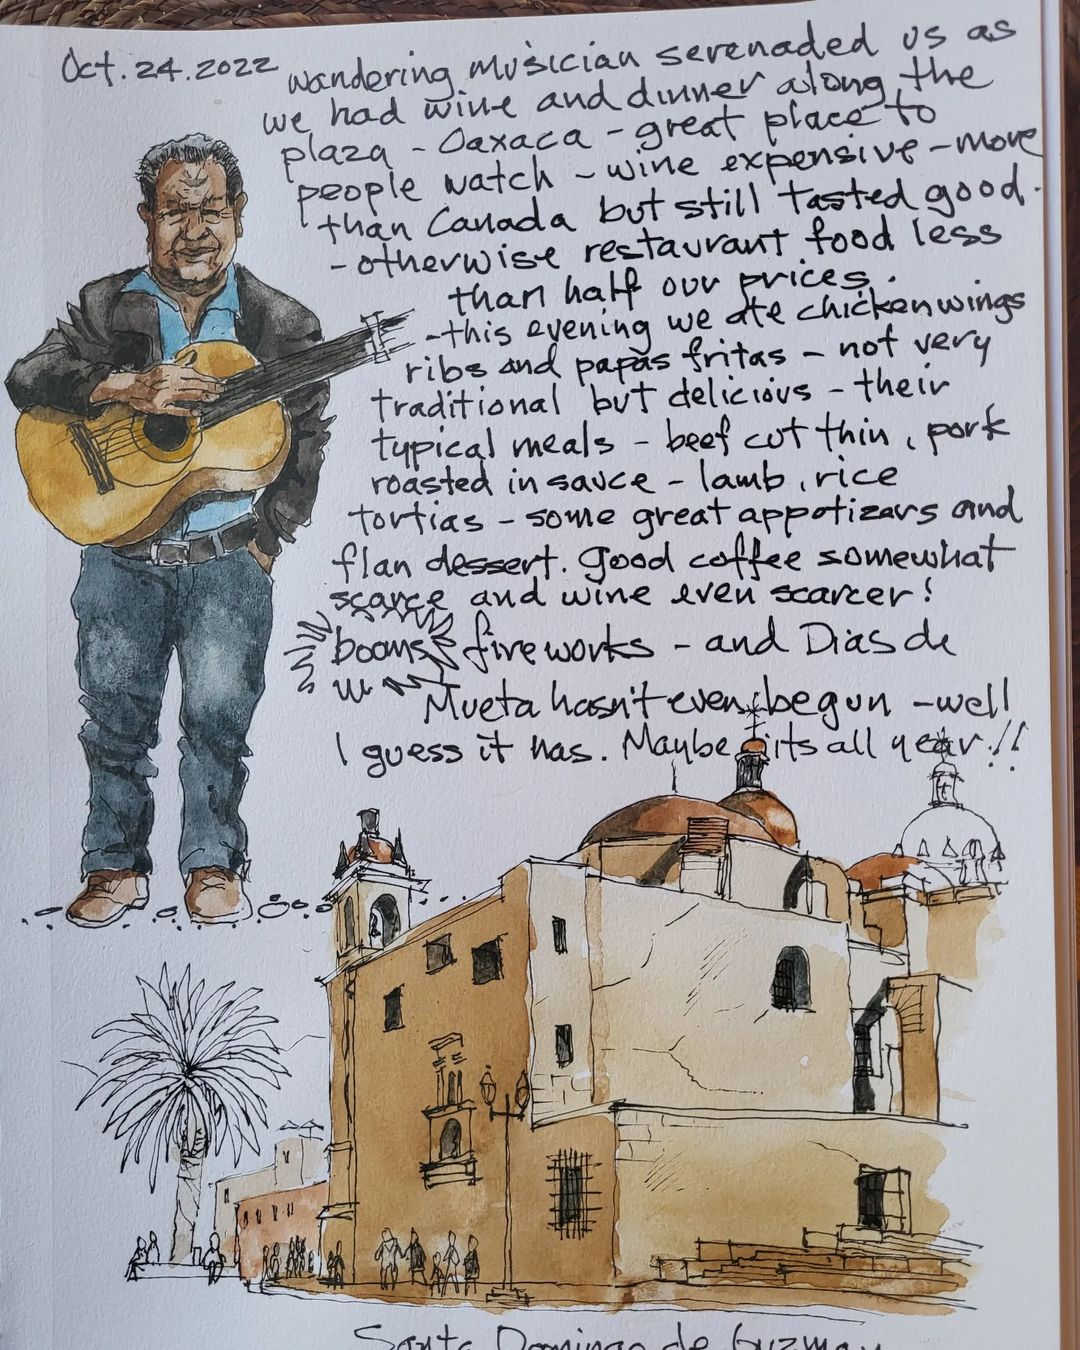 Oct. 24. 2022
wandering musician serenaded us as
we had wine and dinner along the
plaza - Oaxaca - great place to
people watch - wine expensive - more
than Canada but still tasted good.
- otherwise restaurant food less
than half our prices.
- this evening we ate chicken wings
ribs and papas fritas - not very
traditional but delicious - their
typical meals - beef cut thin, pork
roasted in sauce - lamb, rice
tortias - some great appotizars and
flan dessert. Good coffee somewhat
scarce and wine even scarcer!
booms fireworks - and Dias de
Mueta hasn't even begun - well
I guess it has. Maybe its all year!!
Santo Domingo de Guzman